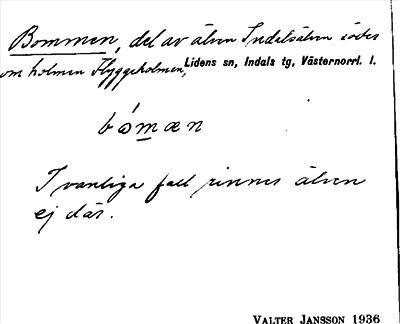 Bommen, del av älven Indalsälven söder
om holmen Flyggeholmen, Lidens sn, Indals tg, Västernorrl. l.
bómæn
I vanliga fall rinner älven
ej där.
VALTER JANSSON 1936